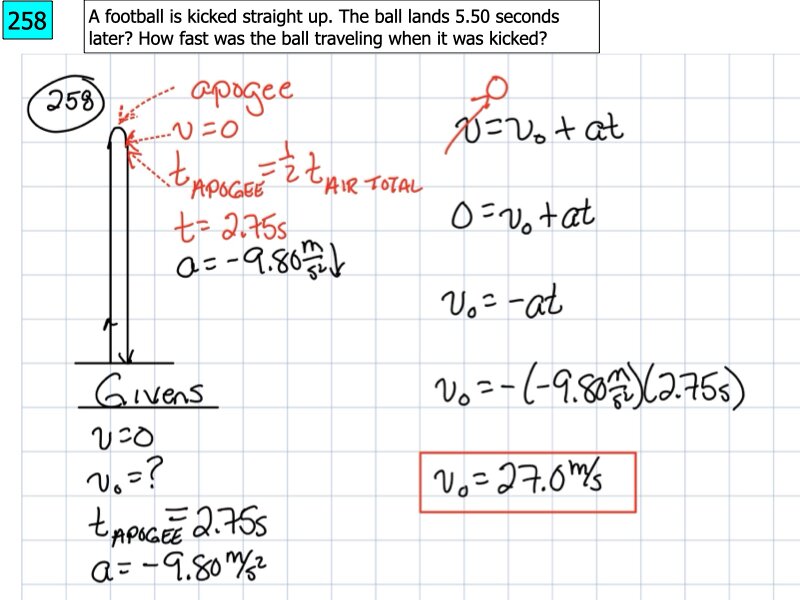 258
A football is kicked straight up. The ball lands 5.50 seconds
later? How fast was the ball traveling when it was kicked?
258
apogee
v=0
t APOGEE = 1/2 t AIR TOTAL
t= 2.75s
a= -9.80 m/s² ↓
Givens
v=0
v₀=?
t APOGEE = 2.75s
a= -9.80 m/s²
0
v=v₀+at
0=v₀+at
v₀= -at
v₀= -(-9.80 m/s²)(2.75s)
v₀= 27.0 m/s